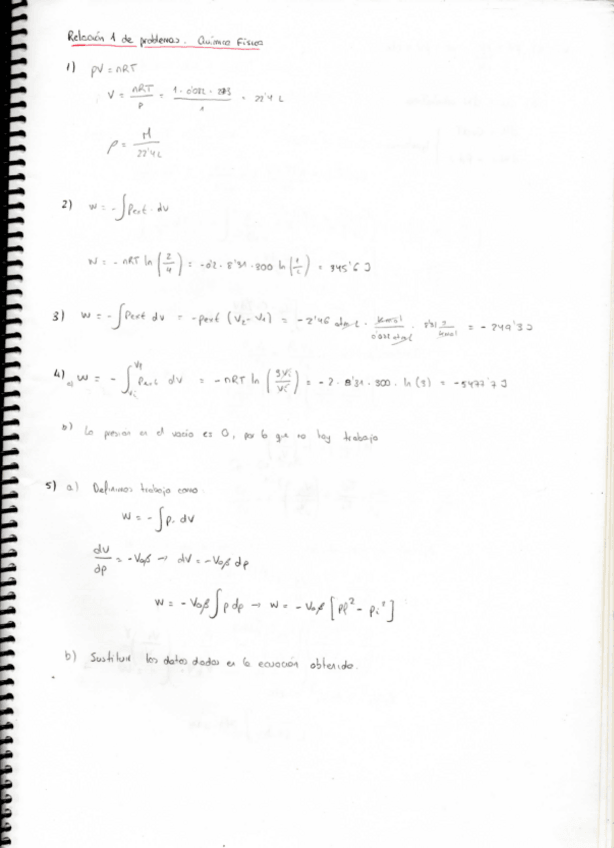 Relación 1 de problemas. Química Física
1) pV = nRT
V = nRT/p = 1 · 0'082 · 273/1 = 22'4 L
ρ = M/22'4 L
2) W = - ∫ Pext · dV
W = - nRT ln (2/4) = -0'2 · 8'31 · 300 ln (1/2) = 345'6 J
3) W = - ∫ Pext dV = - Pext (V2 - V1) = - 2'46 atm·L · K mol/0'082 atm L · 8'31 J/K mol = - 249'3 J
4) a) W = - ∫ Pext dV = - nRT ln (3Vi/Vi) = - 2 · 8'31 · 300 · ln (3) = -5477'7 J
b) La presión en el vacío es 0, por lo que no hay trabajo
5) a) Definimos trabajo como:
W = - ∫ p · dV
dV/dp = - V0β → dV = - V0β dp
W = - V0β ∫ p dp → W = - V0β [Pf² - Pi²]
b) Sustituir los datos dados en la ecuación obtenida.